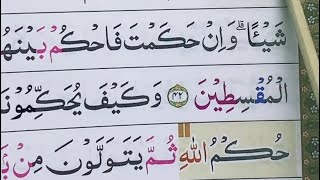 شَيْـًٔا ۗ وَاِنْ حَكَمْتَ فَاحْكُمْ بَيْنَهُ
الْمُقْسِطِيْنَ ۝٤٢ وَكَيْفَ يُحَكِّمُوْنَ
حُكْمُ اللّٰهِ ثُمَّ يَتَوَلَّوْنَ مِنْۢ بَ